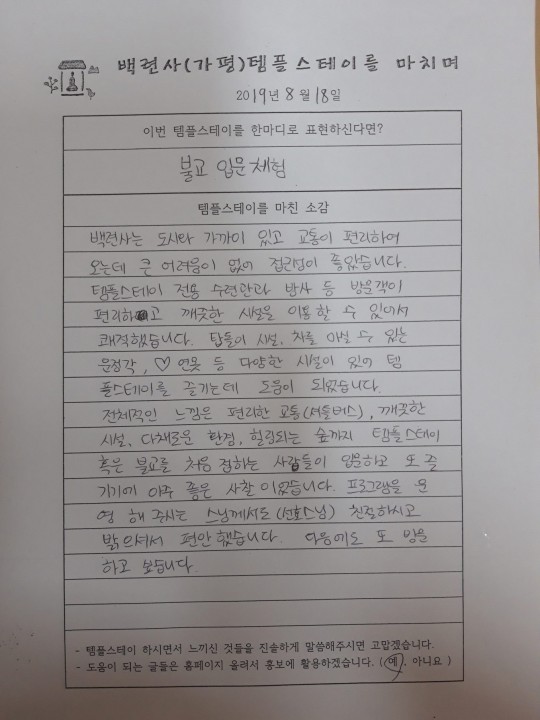 백련사(가평)템플스테이를 마치며
2019년 8월 18일
이번 템플스테이를 한마디로 표현하신다면?
불교 입문 체험
템플스테이를 마친 소감
백련사는 도시와 가까이 있고 교통이 편리하여
오는데 큰 어려움이 없어 접근성이 좋았습니다.
템플스테이 전용 수련관과 방사 등 방문객이
편리하고 깨끗한 시설을 이용할 수 있어서
쾌적했습니다. 탑돌이 시설, 차를 마실 수 있는
문정각, ♡연못 등 다양한 시설이 있어 템
플스테이를 즐기는데 도움이 되었습니다.
전체적인 느낌은 편리한 교통(셔틀버스), 깨끗한
시설, 다채로운 환경, 힐링되는 숲까지 템플스테이
혹은 불교를 처음 접하는 사람들이 입문하고 또 즐
기기에 아주 좋은 사찰이었습니다. 프로그램을 운
영 해 주시는 스님께서도 (선호스님) 친절하시고
밝으셔서 편안했습니다. 다음에도 또 방문
하고 싶습니다.
- 템플스테이 하시면서 느끼신 것들을 진솔하게 말씀해주시면 고맙겠습니다.
- 도움이 되는 글들은 홈페이지 올려서 홍보에 활용하겠습니다. ( 예, 아니요 )